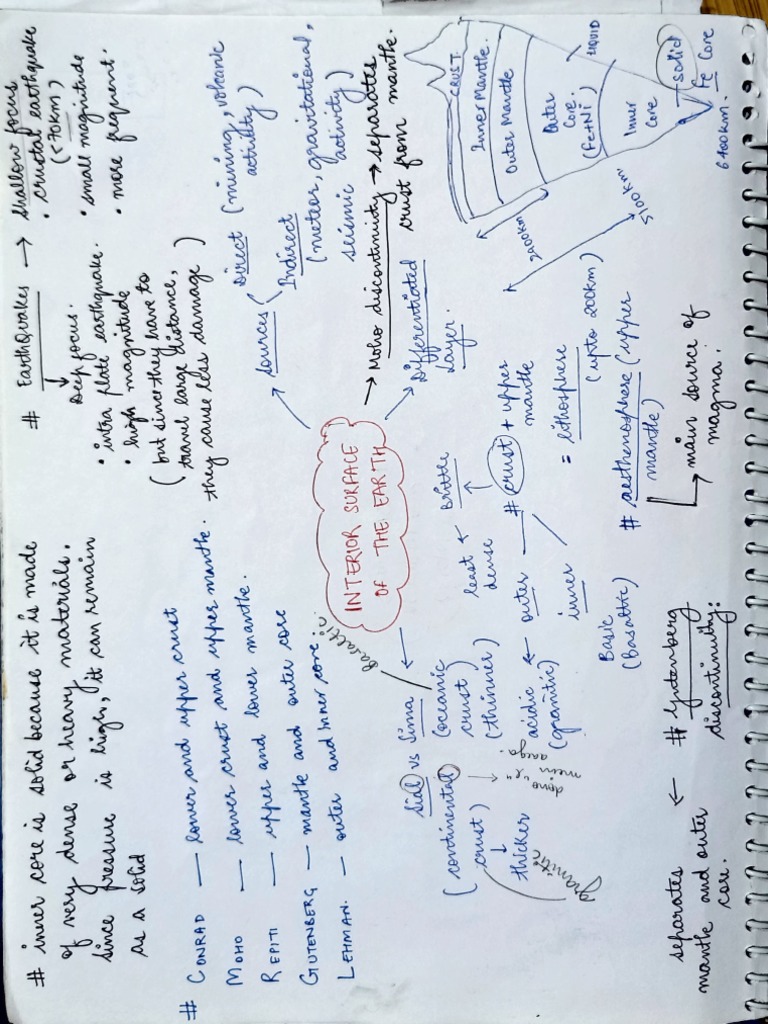 # inner core is solid because it is made
of very dense or heavy materials.
since pressure is high, it can remain
as a solid
# CONRAD — lower and upper crust
MOHO — lower crust and upper mantle.
REPITI — upper and lower mantle.
GUTENBERG — mantle and outer core
LEHMAN. — outer and inner core.
# EarthQuakes → shallow focus
• crustal earthquake
(<70km)
• small magnitude
• more frequent.
↓
Deep focus.
• intra plate earthquake.
• high magnitude
(but since they have to
travel large distance,
they cause less damage)
INTERIOR SURFACE
OF THE EARTH
Sources
Direct (mining, volcanic
activity)
Indirect
(meteor, gravitational,
seismic activity)
→ Moho discontinuity → separates
crust from mantle.
Differentiated
Layer.
CRUST.
Inner Mantle.
Outer Mantle
Outer
Core.
(Fe+Ni)
LIQUID
Inner
Core
solid
Fe Core
6400km.
2900km
5100km
Sial vs Sima
(continental
crust)
↓
thicker
granitic
(oceanic
crust)
(thinner)
basaltic.
dono "c"
mein
aaega.
# crust + upper
mantle
= lithosphere
(upto 200km)
brittle
least
dense
outer
acidic
(granitic)
inner
Basic
(basaltic)
# aesthenosphere (upper
mantle)
→ main source of
magma.
# Gutenberg
discontinuity:
← separates
mantle and outer
core.